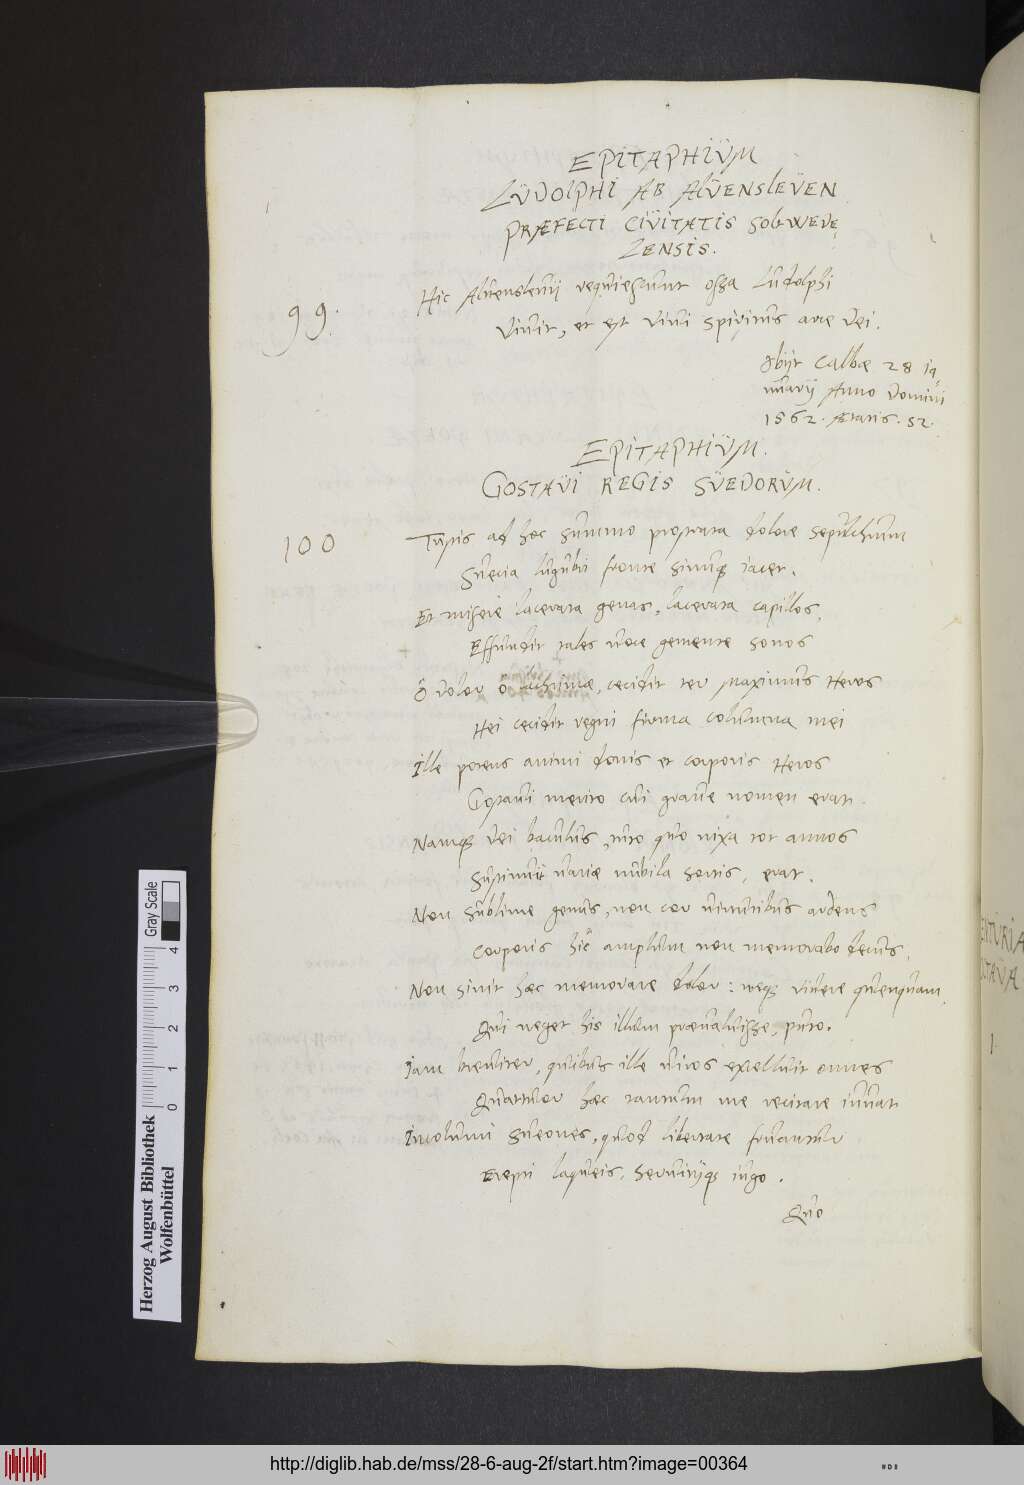 EPITAPHIUM
LUDOLPHI AB ALVENSLEVEN
PRÆFECTI CIVITATIS SOLTWEDE,
LENSIS.
99.
Hic Aluenslevij requiescunt ossa Ludolphi
Viuit, et est viui spiritus arce Dei.
Obijt Calbæ 28 ia
nuarij Anno Domini
1562. Ætatis. 52.
EPITAPHIUM.
GOSTAVI REGIS SUEDORUM.
100
Tristis ad hæc summo prostrata dolore sepulchrum
Suecia lugubri fronte sinuq iacet.
Et misere lacerata genas, lacerata capillos,
Effundit tales voce gemente sonos
ô dolor ô lachrimæ, cecidit ter maximus Heros
Hei cecidit regni firma columna mei
Ille potens animi donis et corporis Heros
Gostaui merito cui graue nomen erat.
Namq Dei baculus, tuto quo nixa tot annos
Sustinuit variæ nubila sortis, erat.
Non sublime genus, non cor virtutibus ardens
Corporis hic amplum non memorabo decus,
Non sinit hæc memorare dolor: neq viuere quenquam,
Qui neget his illum præualuisse, puto.
Iam breuiter, quibus ille viros excelluit omnes
Quattuor hæc tantum me recitare iuuat
Incolumi Sueones, quod libertate fruantur
Erepti laqueis, seruitijq iugo.
Quo
ENTURIA
CTAVA
1.
Herzog August Bibliothek
Wolfenbüttel
0 1 2 3 4
Gray Scale
http://diglib.hab.de/mss/28-6-aug-2f/start.htm?image=00364